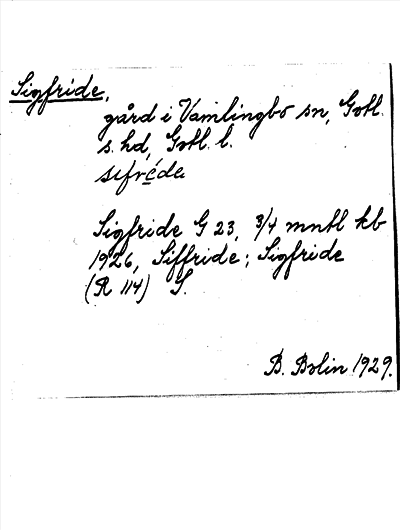 Sigfride,
gård i Vamlingbo sn, Gotl.
s. hd, Gotl. l.
sifrida
Sigfride G 23, 3/4 mntl kb
1926, Siffride; Sigfride
(R 114) S.
B. Bolin 1929.